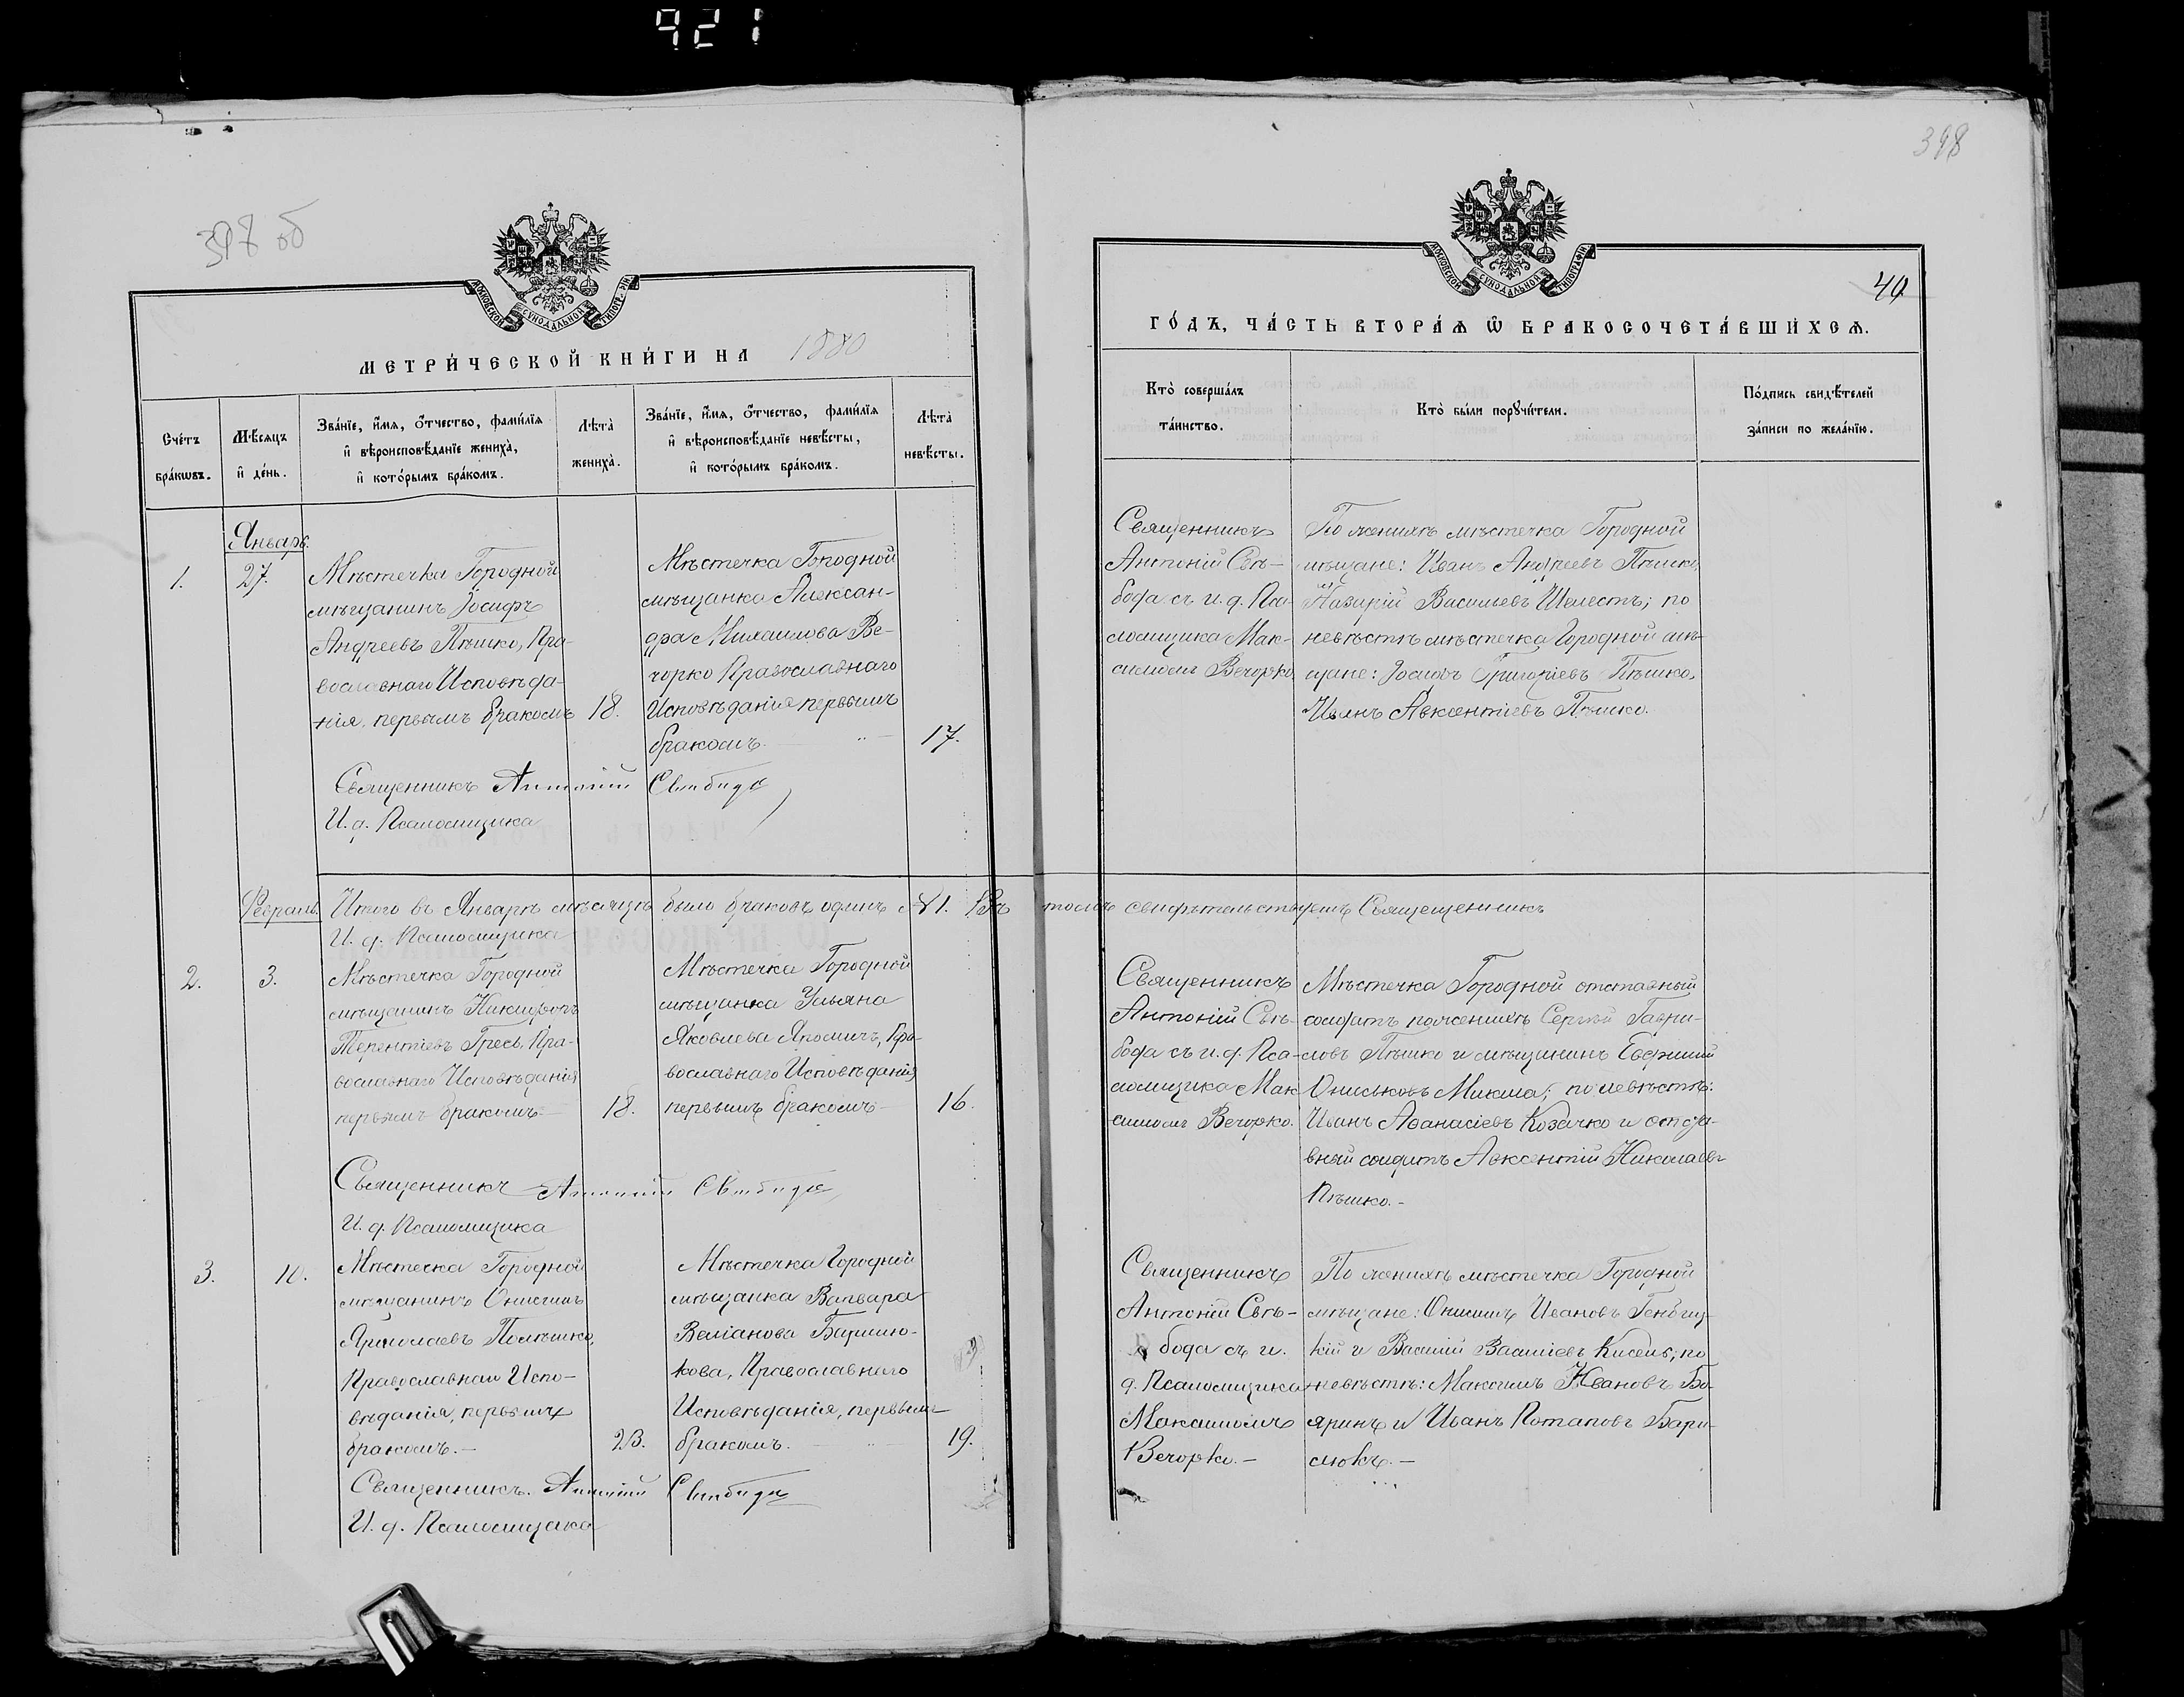 921
398 об
МОСКОВСКОЙ СѴНОДАЛЬНОЙ ТИПОГРАФІИ
МЕТРИ́ЧЕСКОЙ КНИ́ГИ НА 1880
Сче́тъ бра́кωвъ.
Мѣ́сяцъ и҆ де́нь.
Зва́нїе, и҆́мѧ, ѻ҆́тчество, фами́лїѧ
и҆ вѣроисповѣ́данїе жениха̀,
и҆ кото́рымъ бра́комъ.
Лѣ́та̀ жениха̀.
Зва́нїе, и҆́мѧ, ѻ҆́тчество, фами́лїѧ
и҆ вѣроисповѣ́данїе невѣ́сты,
и҆ кото́рымъ бра́комъ.
Лѣ́та̀ невѣ́сты.
Январь.
1.
27.
Мѣстечка Городной
мѣщанинъ Іосифъ
Андреевъ Пѣшко, Пра-
вославнаго Исповѣда-
нія, первымъ бракомъ
18.
Мѣстечка Городной
мѣщанка Алексан-
дра Михаилова Ве-
чорко Православнаго
Исповѣданія первымъ
бракомъ.
17.
Священникъ Антоній Свѣбода
И. д. Псаломщика
Февраль.
Итого въ Январѣ мѣсяцѣ было браковъ одинъ №1. Въ томъ свидѣтельствуемъ Священникъ
И. д. Псаломщика
2.
3.
Мѣстечка Городной
мѣщанинъ Никифоръ
Терентіевъ Гресь, Пра-
вославнаго Исповѣданія
первымъ бракомъ
18.
Мѣстечка Городной
мѣщанка Ульяна
Яковлева Яромичъ, Пра-
вославнаго Исповѣданія
первымъ бракомъ
16.
Священникъ Антоній Свѣбода
И. д. Псаломщика
3.
10.
Мѣстечка Городной
мѣщанинъ Онисимъ
Ярмолаевъ Полѣшко,
Православнаго Испо-
вѣданія, первымъ
бракомъ.
23.
Мѣстечка Городной
мѣщанка Варвара
Веліанова Барило-
кова, Православнаго
Исповѣданія, первымъ
бракомъ.
19.
Священникъ. Антоній Свѣбода
И. д. Псаломщика
398
49
МОСКОВСКОЙ СѴНОДАЛЬНОЙ ТИПОГРАФІИ
ГО́ДЪ, ЧА́СТЬ ВТОРА́Ѧ Ѽ БРАКОСОЧЕТА́ВШИХСѦ.
Кто̀ соверша́лъ
та́инство.
Кто̀ бы́ли порꙋчи́тели.
По́дпись свидѣ́телей
за́писи по жела́нїю.
Священникъ
Антоній Свѣ-
бода съ и. д. Пса-
ломщика Мак-
симомъ Вечорко
По женихѣ мѣстечка Городной
мѣщане: Иванъ Андреевъ Пѣшко,
Назарій Васильевъ Шелестъ; по
невѣстѣ мѣстечка Городной мѣ-
щане: Іосифъ Григоріевъ Пѣшко,
Иванъ Авксентіевъ Пѣшко.
Священникъ
Антоній Свѣ-
бода съ и. д. Пса-
ломщика Мак
симомъ Вечорко.
Мѣстечка Городной отставный
солдатъ по женихѣ Сергѣй Гаври-
ловъ Пѣшко и мѣщанинъ Евфимій
Ониськовъ Микша; по невѣстѣ:
Иванъ Аѳанасіевъ Козачко и отста-
вный солдатъ Авксентій Николаевъ
Пѣшко.-
Священникъ
Антоній Свѣ-
бода съ и.
д. Псаломщика
Максимомъ
Вечорко.-
По женихѣ мѣстечка Городной
мѣщане: Онисимъ Ивановъ
кій и Василій Василіевъ Кисель; по
невѣстѣ: Максимъ Ивановъ Бо-
яринъ и Иванъ Потаповъ Бари-
люкъ.-